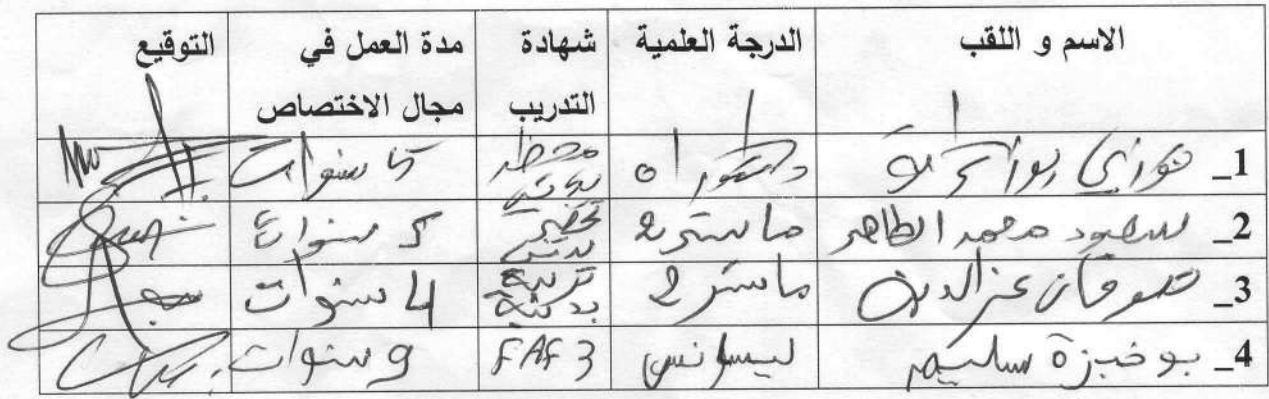 الاسم و اللقب الدرجة العلمية شهادة التدريب مدة العمل في مجال الاختصاص التوقيع
1_ فوزي دكتوراه محضر بدني 5 سنوات
2_ لسعود محمد الطاهر ماستر 2 تحضير بدني 5 سنوات
3_ عز الدين ماستر 2 تربية بدنية 4 سنوات
4_ بوخبزة سليم ليسانس FAF 3 9 سنوات